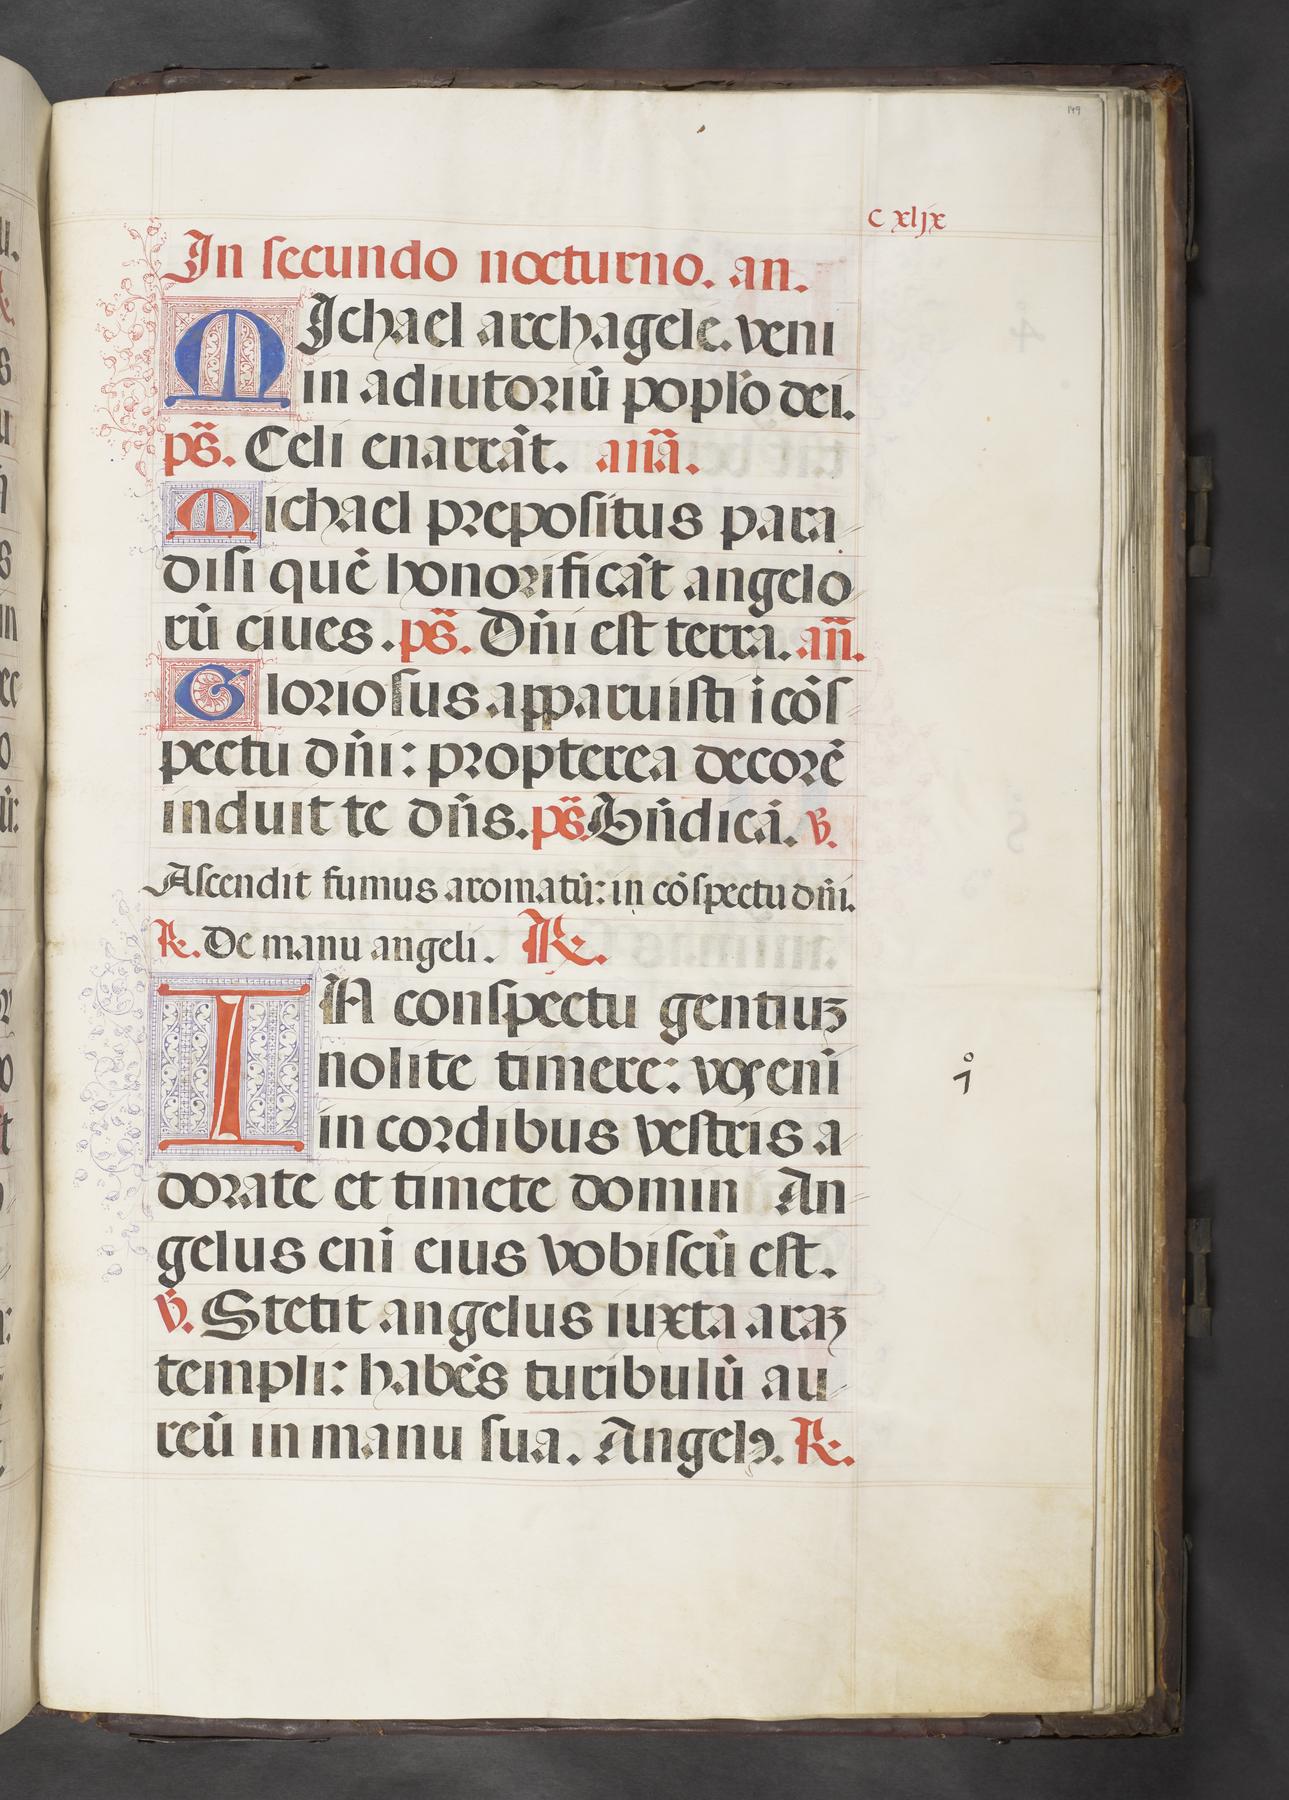 149
C xljx
In secundo nocturno. an.
MIchael archagele. veni
in adiutoriū poplo dei.
ps̄. Celi enarrāt. anā.
Michael prepositus para
disi quē honorificāt angelo
rū ciues. ps̄. Dn̄i est terra. an̄.
Gloriosus apparuisti i cōs
pectu dn̄i: propterea decorē
induit te dn̄s. ps̄. Bn̄dicā. ℣.
Ascendit fumus aromatū: in cōspectu dn̄i.
℟. De manu angeli. ℟.
IN conspectu gentiuꝫ
nolite timere: vos eni
in cordibus vestris a
dorate et timete domin An
gelus eni eius vobiscū est.
℣. Stetit angelus iuxta araꝫ
templi: habēs turibulū au
reū in manu sua. Angelꝰ. ℟.